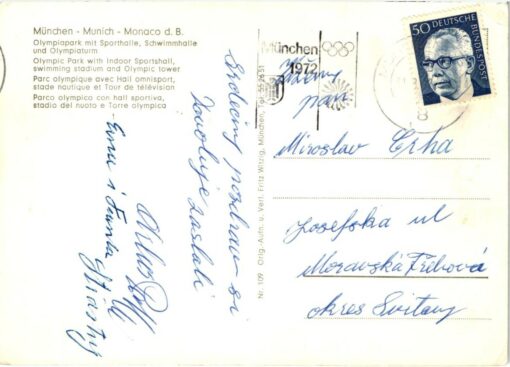 München - Munich - Monaco d. B.
Olympiapark mit Sporthalle, Schwimmhalle
und Olympiaturm
Olympic Park with Indoor Sportshall,
swimming stadium and Olympic tower
Parc olympique avec Hall omnisport,
stade nautique et Tour de télévision
Parco olympico con hall sportiva,
stadio del nuoto e Torre olympica
Srdečný pozdrav si
dovoluje zaslati
Nr. 109 Orig.-Aufn. u. Verl. Fritz Witzig, München, Tel. 55 26 51
München
1972
50 DEUTSCHE
BUNDESPOST
8
Vážený
pan
Miroslav Crha
Josefska ul
Moravská Třebová
okres Svitavy